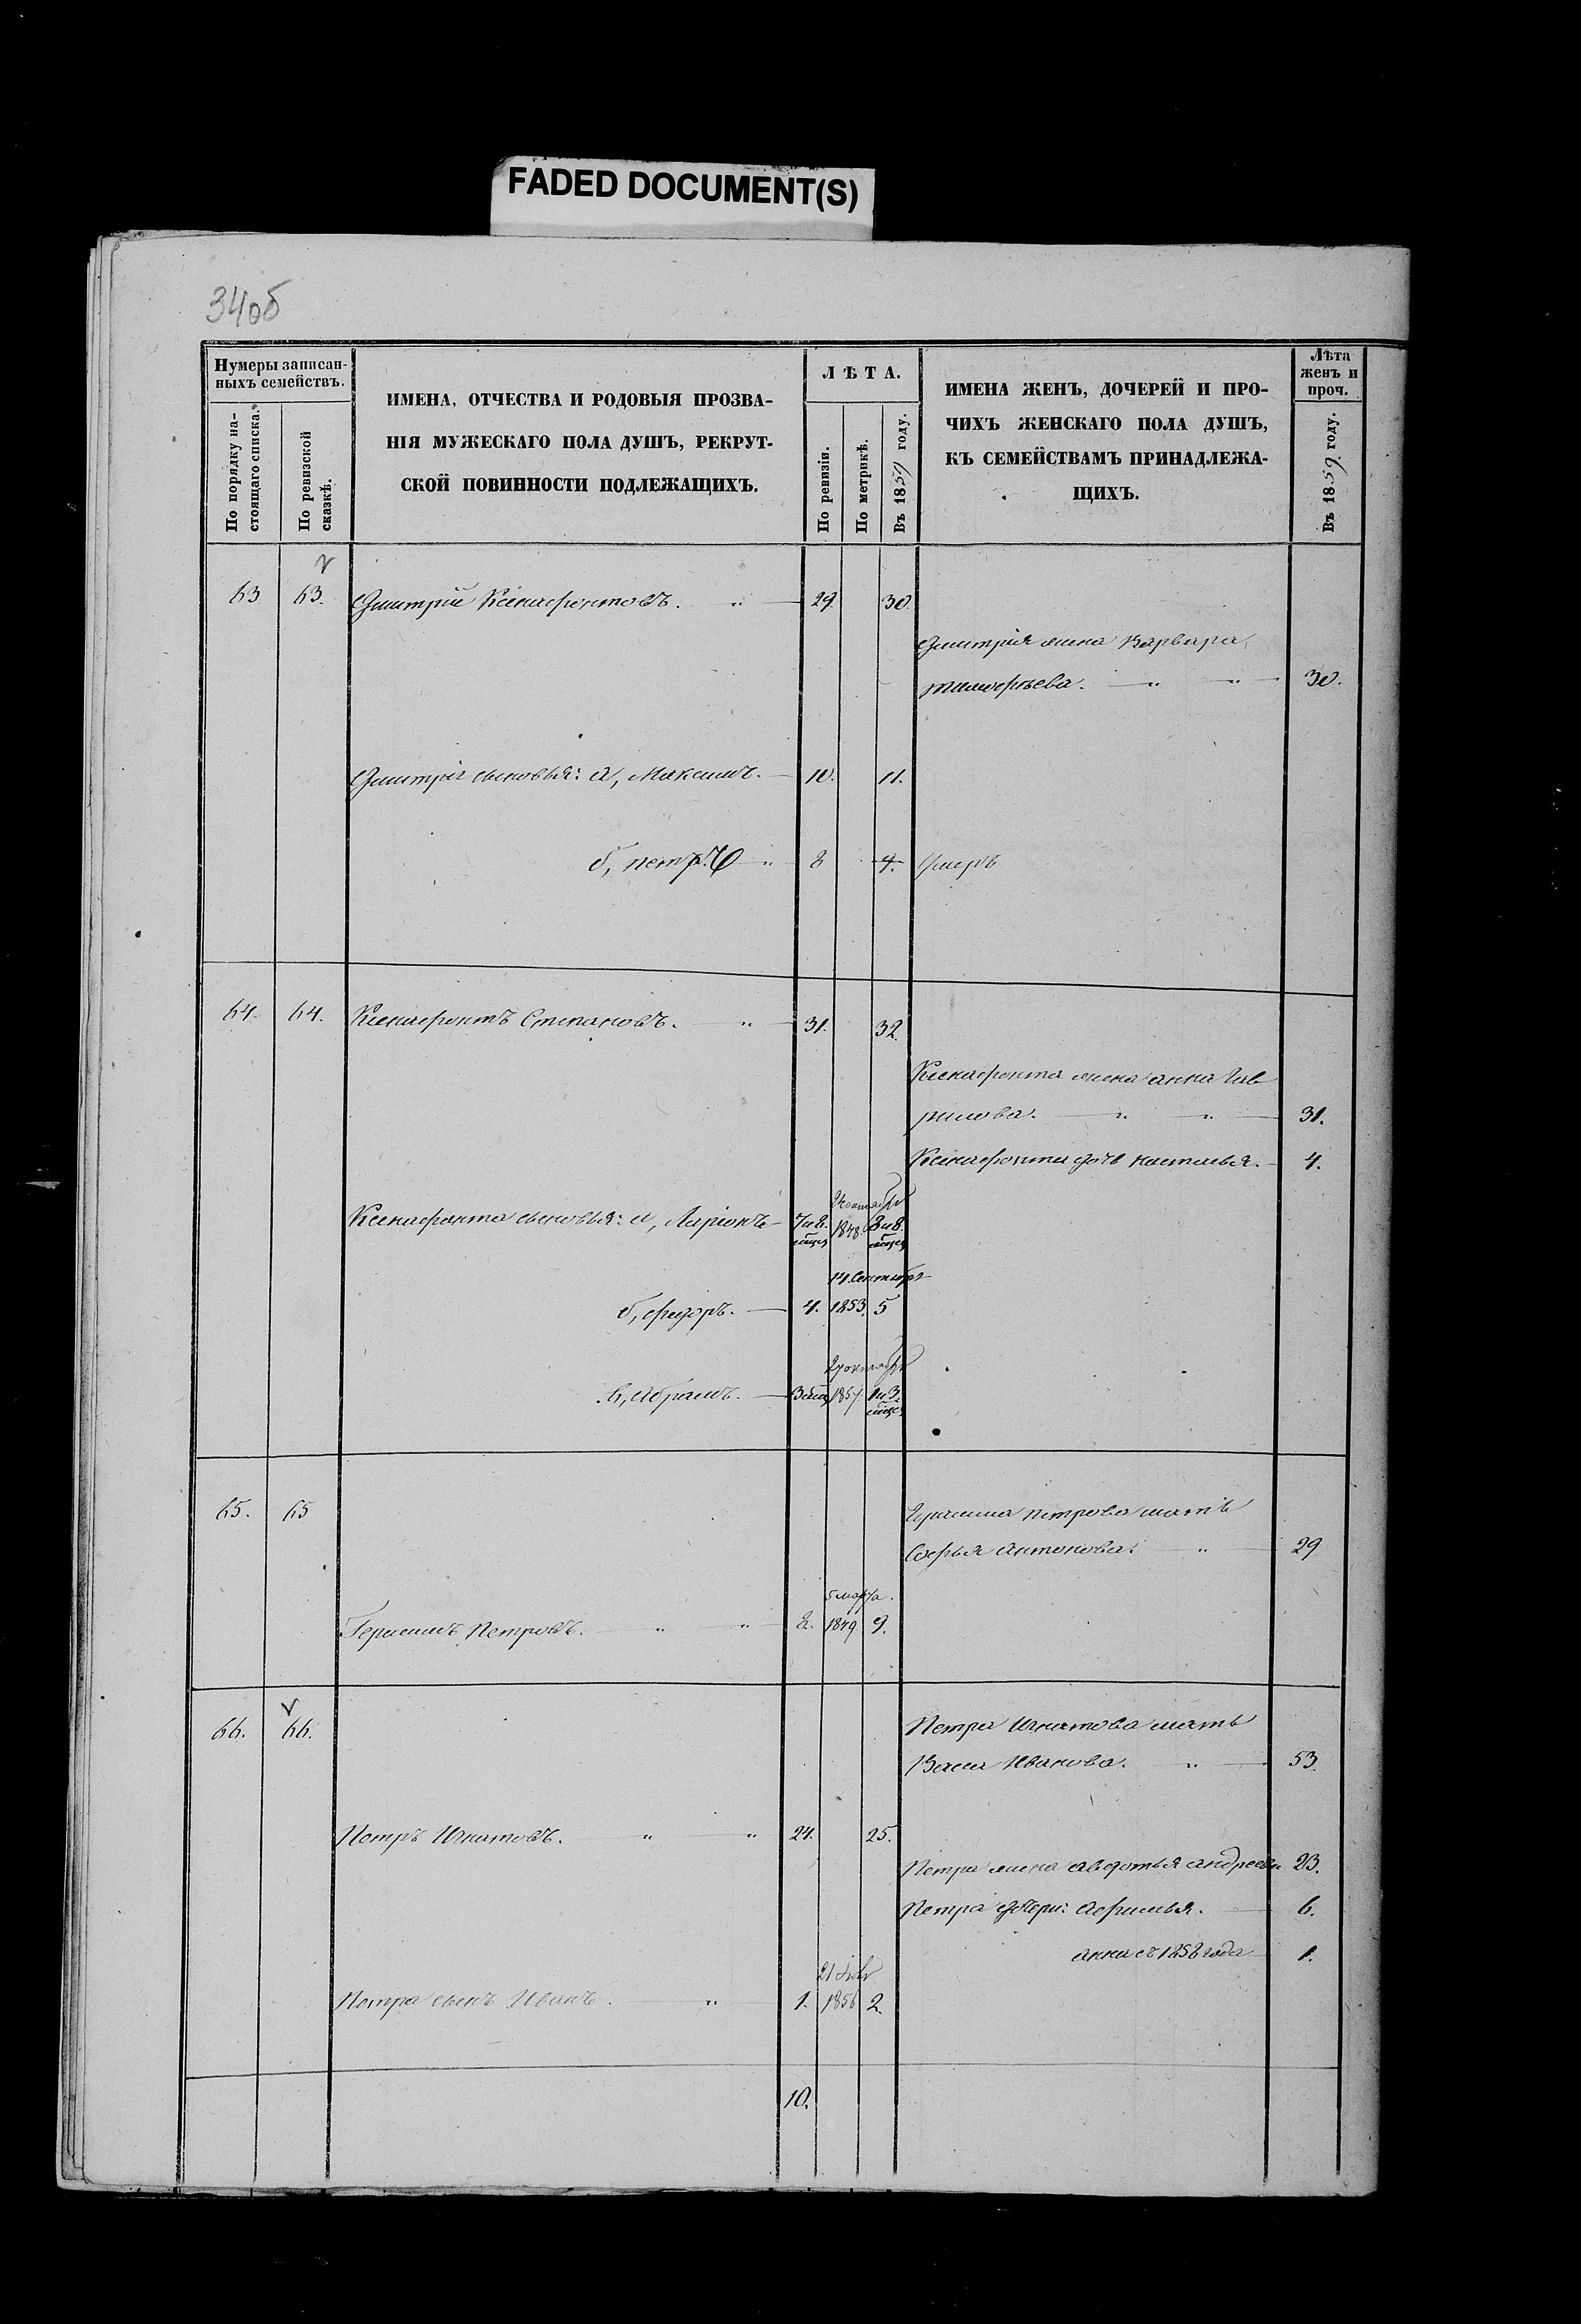 FADED DOCUMENT(S)
34об
Нумеры записан-
ныхъ семействъ.
По порядку на-
стоящаго списка.
По ревизской
сказкѣ.
ИМЕНА, ОТЧЕСТВА И РОДОВЫЯ ПРОЗВА-
НІЯ МУЖЕСКАГО ПОЛА ДУШЪ, РЕКРУТ-
СКОЙ ПОВИННОСТИ ПОДЛЕЖАЩИХЪ.
ЛѢТА.
По ревизіи.
По метрикѣ.
Въ 1859 году.
ИМЕНА ЖЕНЪ, ДОЧЕРЕЙ И ПРО-
ЧИХЪ ЖЕНСКАГО ПОЛА ДУШЪ,
КЪ СЕМЕЙСТВАМЪ ПРИНАДЛЕЖА-
ЩИХЪ.
Лѣта
женъ и
проч.
Въ 1859 году.
63 63. Дмитрій Ксенафонтовъ. 29. 30.
Дмитрія жена Варвара
тимофѣева. 30.
Дмитрія сыновья: а, Максимъ. 10. 11.
б, петръ 8 9. Умеръ
64. 64. Ксенафонтъ Степановъ. 31. 32.
Ксенафонта жена анна Гав
рилова. 31.
Ксенафонта дочь настасья. 4.
октября
Ксенафонта сыновья: а, Ларіонъ 7 и 8. 1848. 8 и 8
14 Сентября
б, федоръ. 4. 1853. 5
октября
в, Абрамъ. 3 1857. 1 и 3
65. 65 Герасима петрова мать
Софья Антонова. 29
5 марта.
Герасимъ Петровъ. 8. 1849 9.
66. 66. Петра Игнатова мать
Васса Иванова. 53.
Петръ Игнатовъ. 24. 25.
Петра жена авдотья андреева 23.
Петра дочери: Афимья. 6.
анна съ 1858 года 1.
21
Петра сынъ Иванъ. 1. 1856 2.
10.